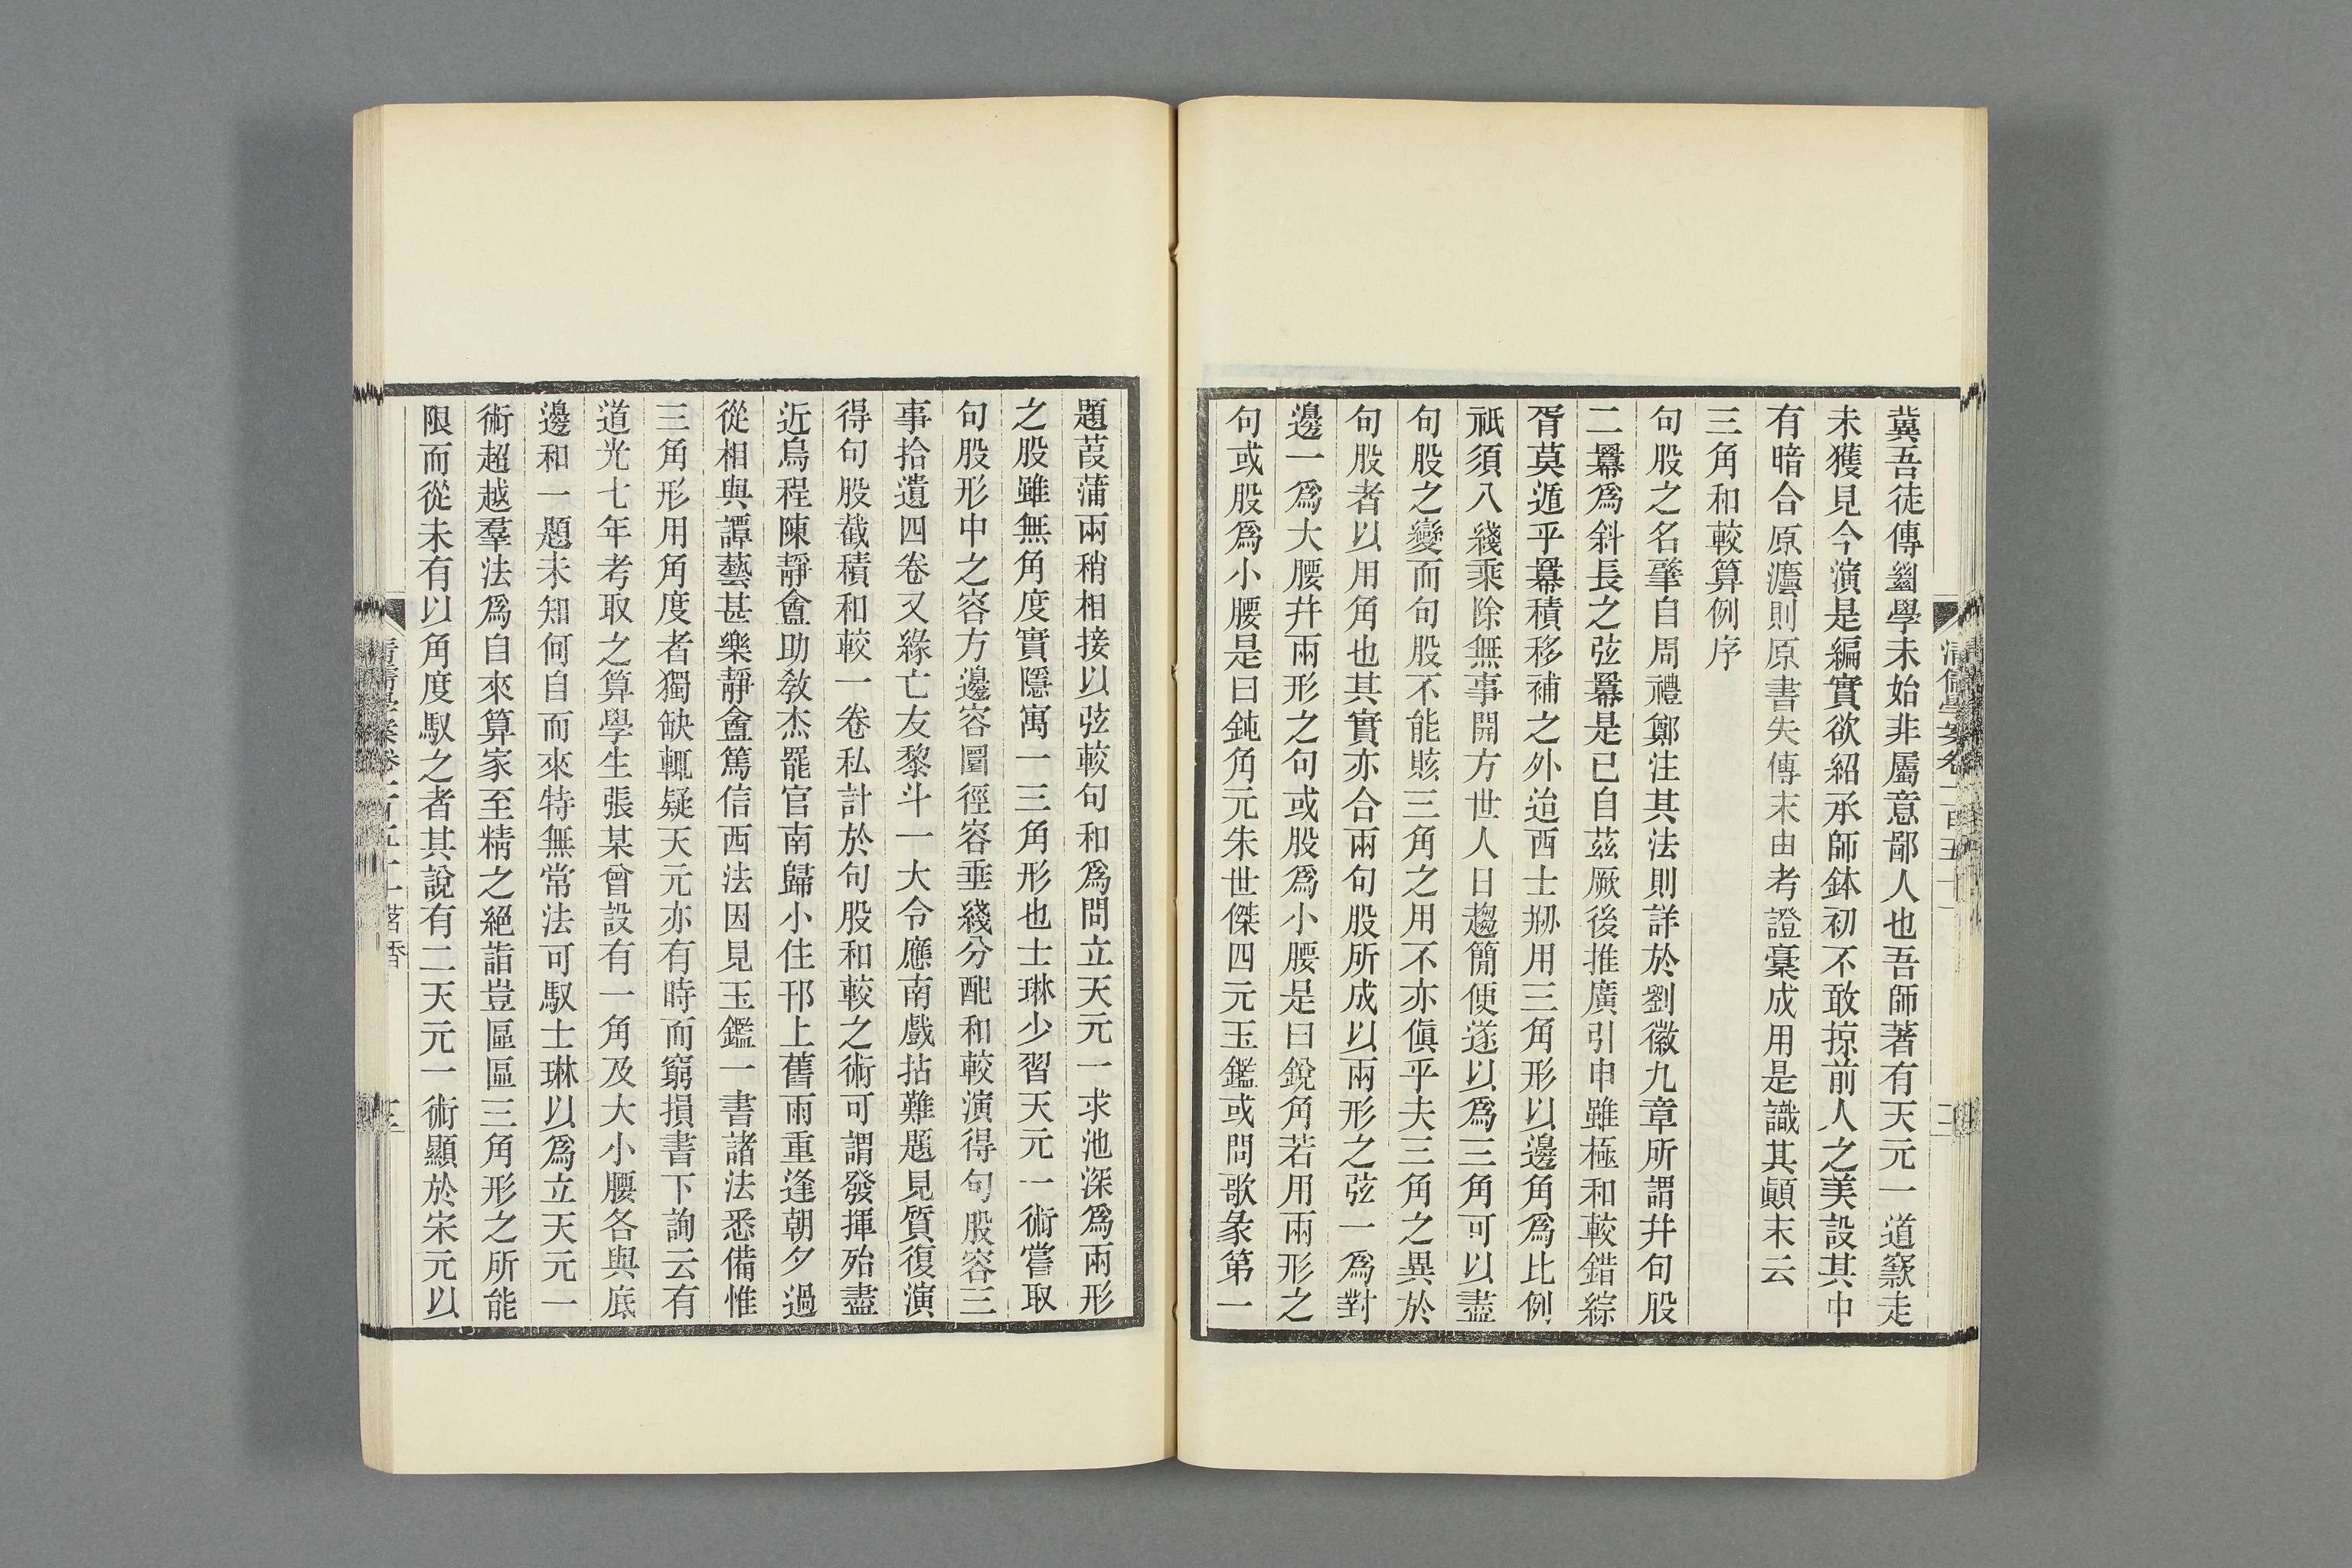 冀吾徒傳茲學未始非屬意鄙人也吾師著有天元一道窾走
未獲見今演是編實欲紹承師鉢初不敢掠前人之美設其中
有暗合原灋則原書失傳末由考證稾成用是識其顚末云
三角和較算例序
句股之名肇自周禮鄭注其法則詳於劉徽九章所謂幷句股
二冪爲斜長之弦冪是已自茲厥後推廣引申雖極和較錯綜
胥莫遁乎冪積移補之外迨西士剏用三角形以邊角爲比例
祇須八綫乘除無事開方世人日趨簡便遂以爲三角可以盡
句股之變而句股不能賅三角之用不亦傎乎夫三角之異於
句股者以用角也其實亦合兩句股所成以兩形之弦一爲對
邊一爲大腰幷兩形之句或股爲小腰是曰銳角若用兩形之
句或股爲小腰是曰鈍角元朱世傑四元玉鑑或問歌彖第一
題葭蒲兩稍相接以弦較句和爲問立天元一求池深爲兩形
之股雖無角度實隱寓一三角形也士琳少習天元一術嘗取
句股形中之容方邊容圓徑容垂綫分配和較演得句股容三
事拾遺四卷又緣亡友黎斗一大令應南戲拈難題見質復演
得句股截積和較一卷私計於句股和較之術可謂發揮殆盡
近烏程陳靜盦助敎杰罷官南歸小住邗上舊雨重逢朝夕過
從相與譚藝甚樂靜盦篤信西法因見玉鑑一書諸法悉備惟
三角形用角度者獨缺輒疑天元亦有時而窮損書下詢云有
道光七年考取之算學生張某曾設有一角及大小腰各與底
邊和一題未知何自而來特無常法可馭士琳以爲立天元一
術超越羣法爲自來算家至精之絕詣豈區區三角形之所能
限而從未有以角度馭之者其說有二天元一術顯於宋元以